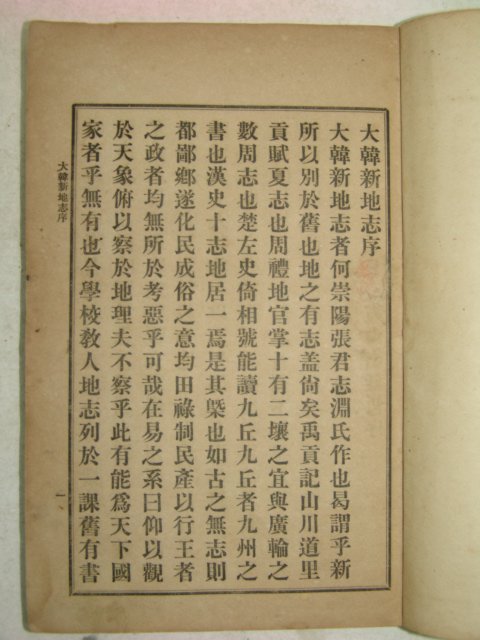 大韓新地志序
大韓新地志者何崇陽張君志淵氏作也曷謂乎新
所以別於舊也地之有志盖尙矣禹貢記山川道里
貢賦夏志也周禮地官掌十有二壤之宜與廣輪之
數周志也楚左史倚相號能讀九丘九丘者九州之
書也漢史十志地居一焉是其槩也如古之無志則
都鄙鄉遂化民成俗之意均田祿制民產以行王者
之政者均無所於考惡乎可哉在易之系曰仰以觀
於天象俯以察於地理夫不察乎此有能爲天下國
家者乎無有也今學校敎人地志列於一課舊有書
大韓新地志序
一